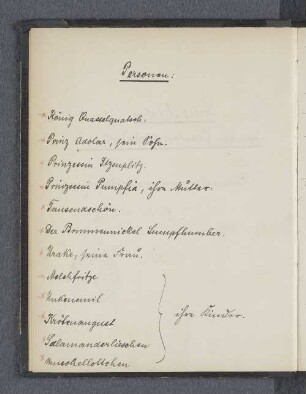 Personen:
König Quasselquatsch.
Prinz Adolar, sein Sohn.
Prinzessin Itzenplitz.
Prinzessin Pumpfia, ihre Mutter.
Tausendschön.
Der Brummnickel Sumpfhumber.
Urake, seine Frau.
Molchfritze
Unkenemil
Krötenaugust
ihre Kinder.
Salamanderlieschen
Muschellottchen